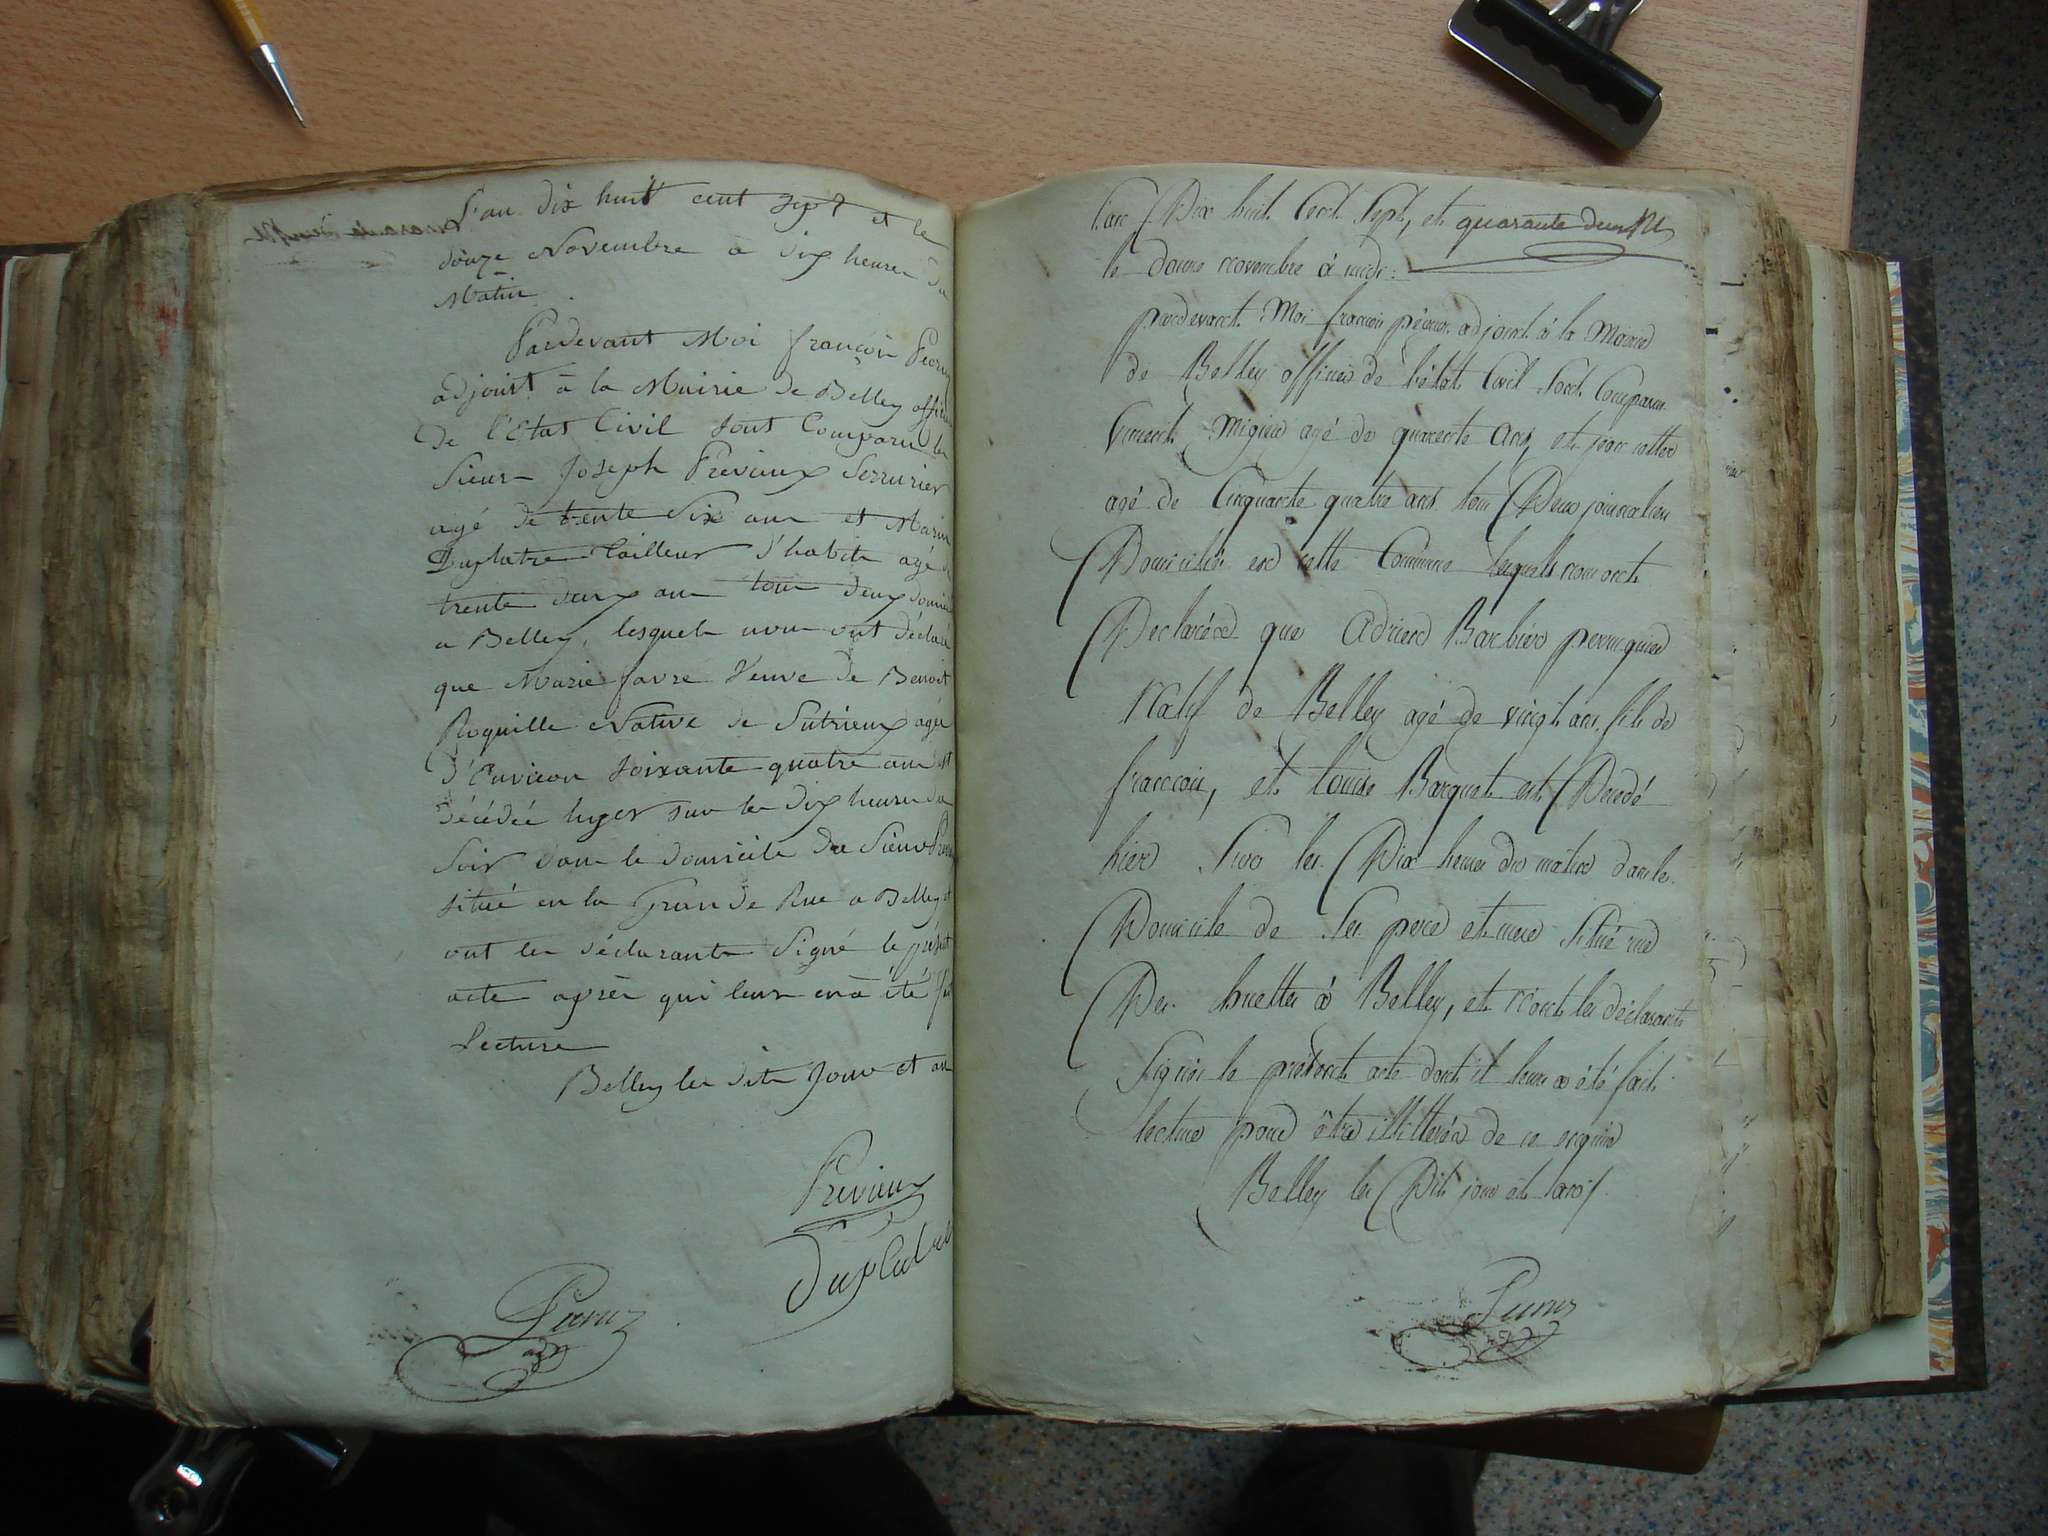 L'an dix huit cent sept et le
douze Novembre a dix heures du
Matin
Pardevant Moi françois
adjoint à la Mairie de Belley officier
de l'Etat Civil sont Comparu les
Sieurs Joseph Prévieux Serrurier
agé de trente Six ans et Marin
Duplatre tailleur d'habits agé de
trente deux ans tous deux
a Belley, lesquels nous ont déclaré
que Marie favre Veuve de Benoit
Roquille Native de Sutrieux agée
d'Environ soixante quatre ans est
décédée hyer sur les dix heures du
soir dans le domicile du Sieur
situé en la Grande Rue a Belley et
ont les déclarants Signé le présent
acte après qui leur en a été fait
Lecture
Belley les dits Jour et an
Prévieux
Duplatre
L'an Dix huit Cent Sept, et quarante deux
le douze novembre à midi :
pardevant Moi francois adjoint à la Mairie
de Belley officier de l'état Civil sont Comparus
Vincent Migieu agé de quarante ans, et jean
agé de Cinquante quatre ans tous Deux journaliers
Domiciliés en cette Commune lesquels nous ont
Declarés que Adrien Barbier perruquier
Natif de Belley agé de vingt ans fils de
francois, et louise Barquet est Décédé
hier sur les Dix heures du matin dans le
Domicile de Ses pere et mere Situé rue
Des à Belley, et n'ont les déclarants
Signés le présent acte dont il leur a été fait
lecture pour être illitterés de ce enquis
Belley les Dits jour et an